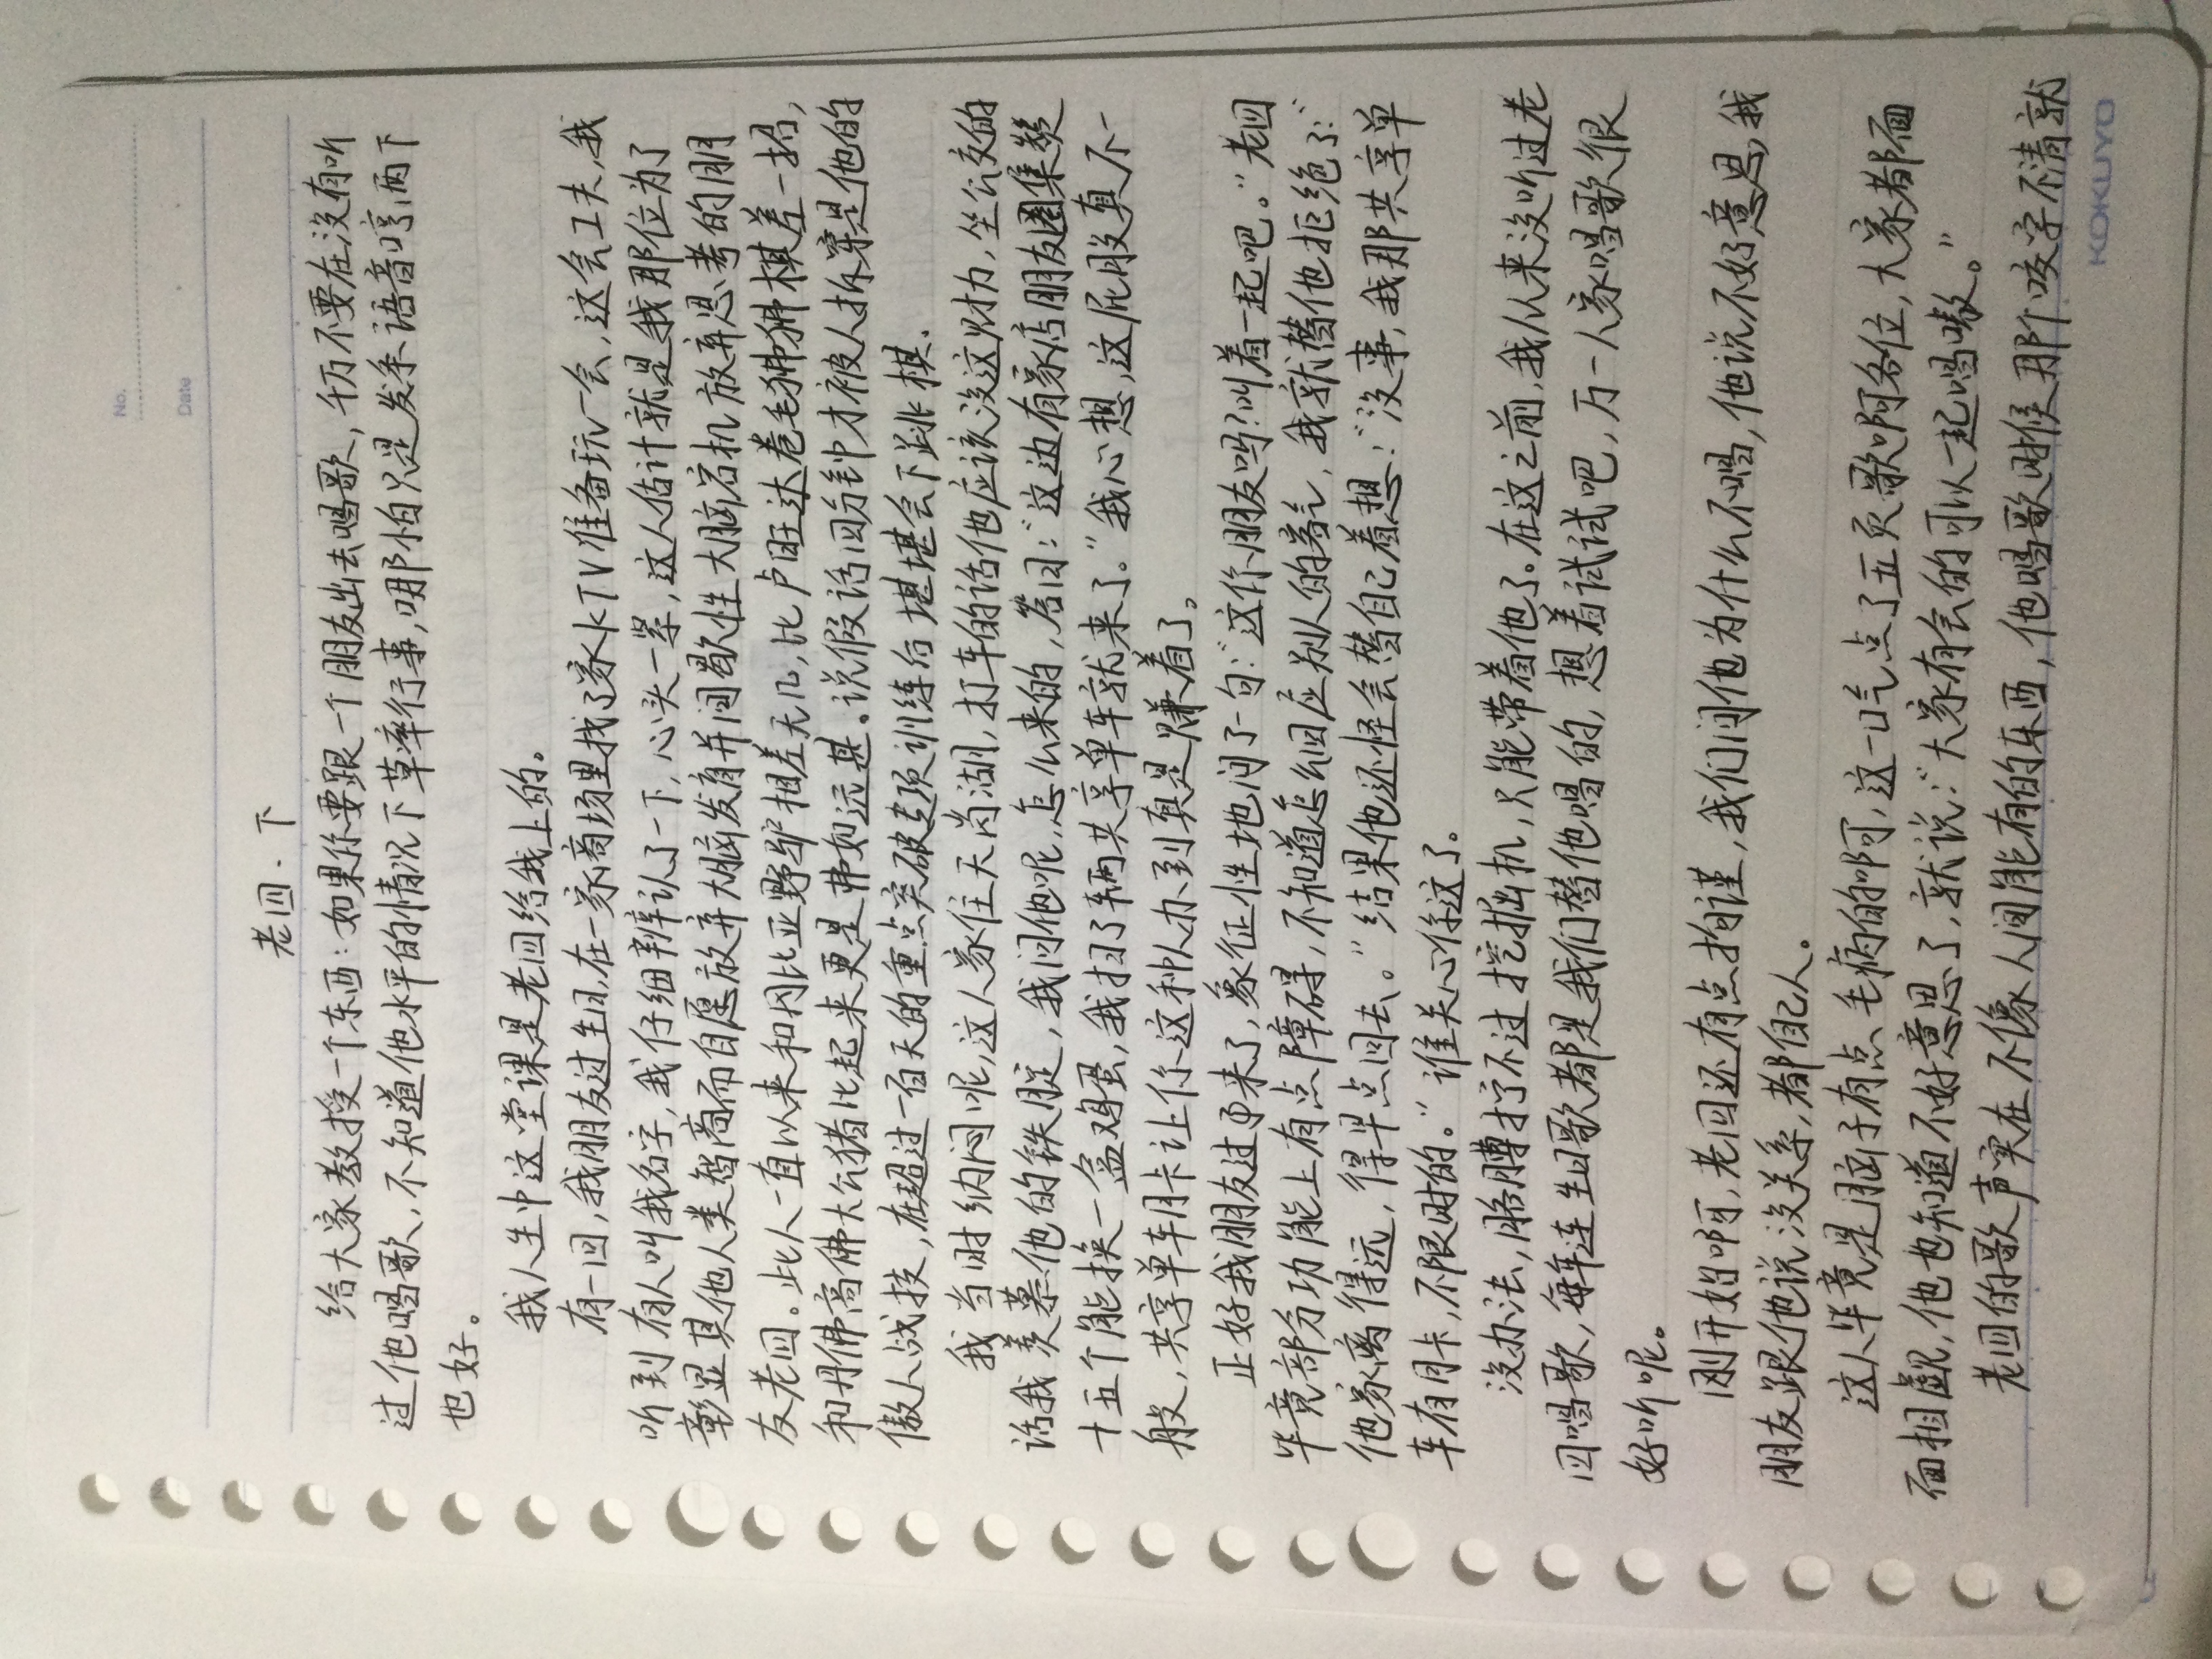 No.
Date
老四·下
给大家教授一个东西：如果你要跟一个朋友出去唱歌，千万不要在没有听
过他唱歌，不知道他水平的情况下草率行事，哪怕只是发条语音哼两下
也好。
我人生中这堂课是老四给我上的。
有一回，我朋友过生日，在一家商场里找了家KTV准备玩一会，这会工夫，我
听到有人叫我名字，我仔细辨认了一下，心头一紧，这人估计就是我那位为了
彰显其他人类智商而自愿放弃大脑发育并间歇性大脑宕机放弃思考的朋
友老四。此人一直以来和冈比亚野驴相差无几，比卢旺达卷毛狒狒棋差一招，
和丹佛高佛大公猪比起来更是弗如远甚。说假话四分钟才被人拆穿是他的
傲人战技，在超过一百天的重点突破专项训练后堪堪会下跳棋.
我当时纳闷呢，这人家住天尚湖，打车的话他应该没这财力，坐公交的
话我羡慕他的铁腚，我问他呢，怎么来的，答曰：“这边有家店朋友圈集赞
十五个能换一盒鸡蛋，我扫了辆共享单车就来了。”我心想，这屁股真不一
般，共享单车月卡让你这种人办到真是赚着了。
正好我朋友过来了，象征性地问了一句：“这你朋友吗？叫着一起吧。”老四
毕竟部分功能上有点障碍，不知道怎么回应别人的客气，我就替他拒绝了：“
他家离得远，得早点回去。”结果他还怪会替自己着想：“没事，我那共享单
车有月卡，不限时的。”谁关心你这了。
没办法，胳膊拧不过挖掘机，只能带着他了。在这之前，我从来没听过老
四唱歌，每年连生日歌都是我们替他唱的，想着试试吧，万一人家唱歌很
好听呢。
刚开始啊，老四还有点拘谨，我们问他为什么不唱，他说不好意思，我
朋友跟他说没关系，都自己人。
这人毕竟是脑子有点毛病的啊，这一口气点了五页歌啊各位，大家都面
面相觑，他也知道不好意思了，就说：“大家有会的可以一起唱嗷。”
老四的歌声实在不像人间能有的东西，他唱歌时候那个咬字不清就
KOKUYO